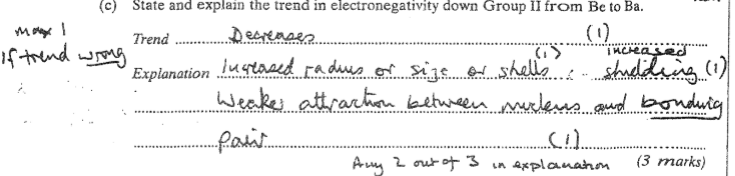 (c) State and explain the trend in electronegativity down Group II from Be to Ba.
max 1 if trend wrong
Trend Decreases (1)
Explanation Increased radius or size or shells (1) ; increased shielding (1)
Weaker attraction between nucleus and bonding
pair (1)
Any 2 out of 3 in explanation (3 marks)